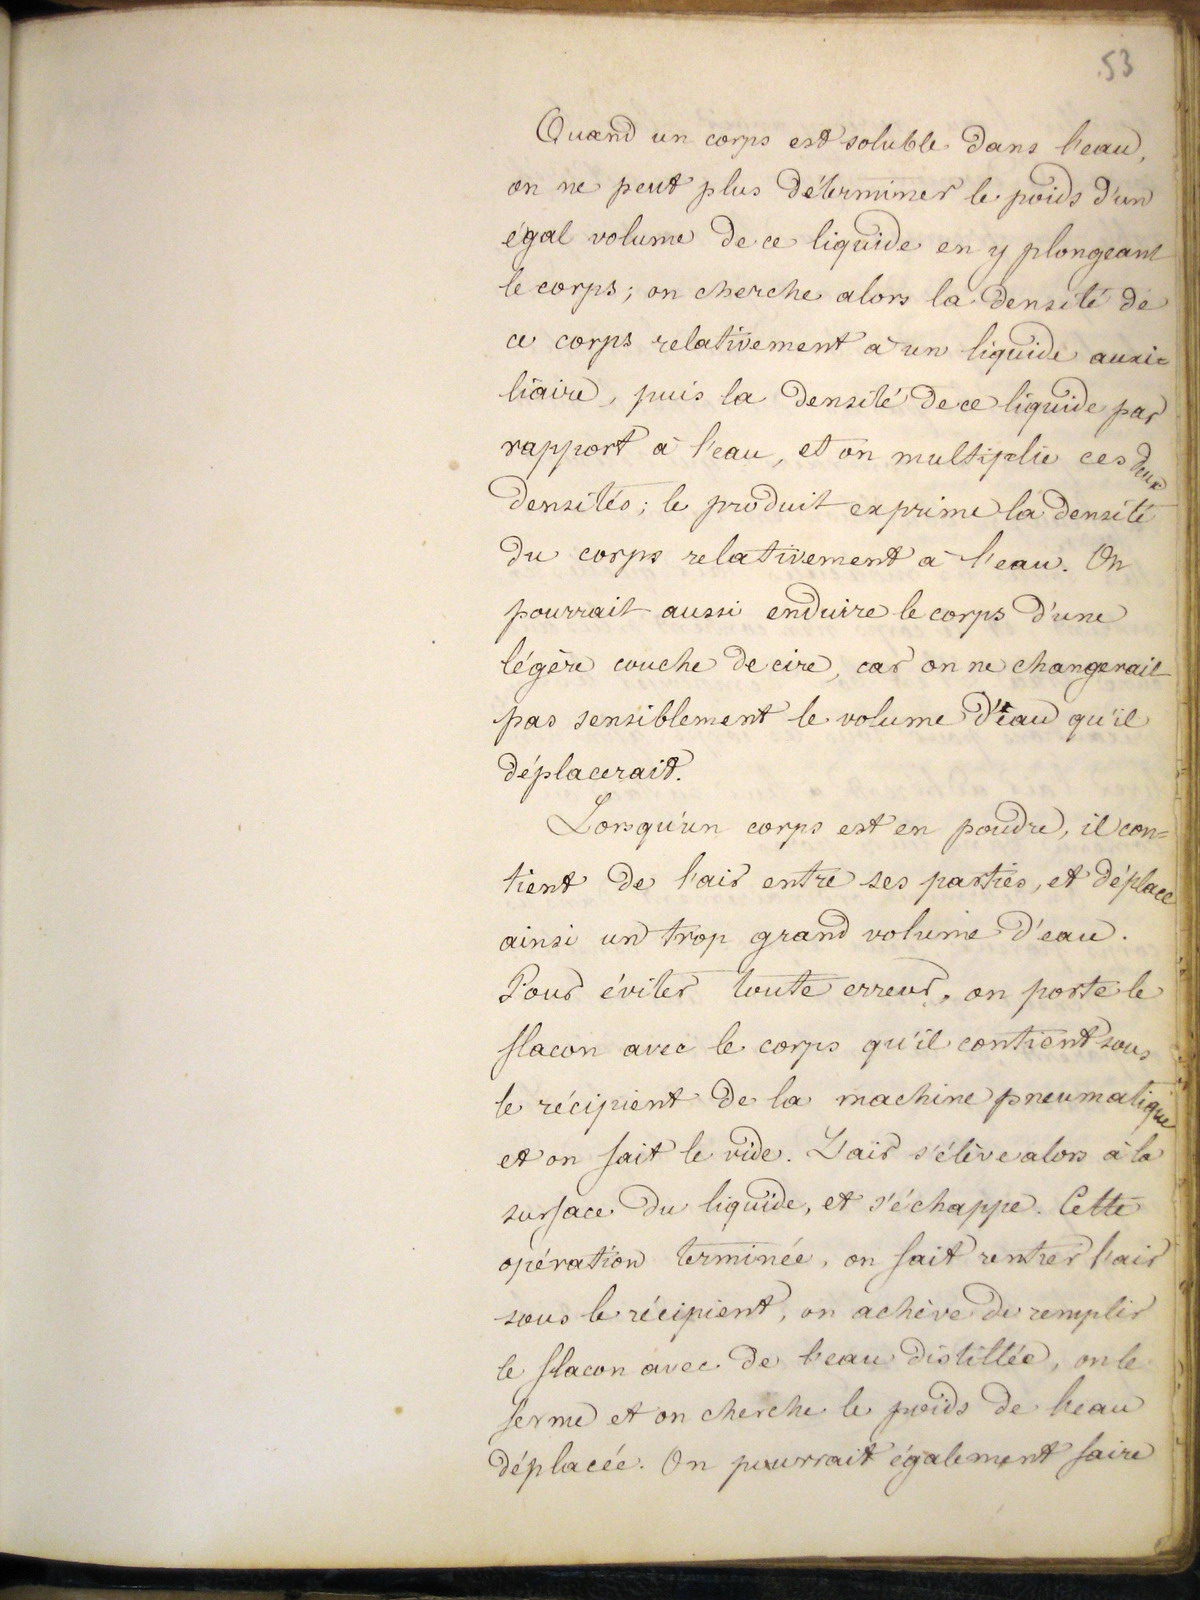 53
Quand un corps est soluble dans l'eau,
on ne peut plus déterminer le poids d'un
égal volume de ce liquide en y plongeant
le corps; on cherche alors la densité de
ce corps relativement à un liquide auxi=
liaire, puis la densité de ce liquide par
rapport à l'eau, et on multiplie ces deux
densités; le produit exprime la densité
du corps relativement à l'eau. On
pourrait aussi enduire le corps d'une
légère couche de cire, car on ne changerait
pas sensiblement le volume d'eau qu'il
déplacerait.
Lorsqu'un corps est en poudre, il con=
tient de l'air entre ses parties, et déplace
ainsi un trop grand volume d'eau.
Pour éviter toute erreur, on porte le
flacon avec le corps qu'il contient sous
le récipient de la machine pneumatique
et on fait le vide. L'air s'élève alors à la
surface du liquide, et s'échappe. Cette
opération terminée, on fait rentrer l'air
sous le récipient, on achève de remplir
le flacon avec de l'eau distillée, on le
ferme et on cherche le poids de l'eau
déplacée. On pourrait également faire